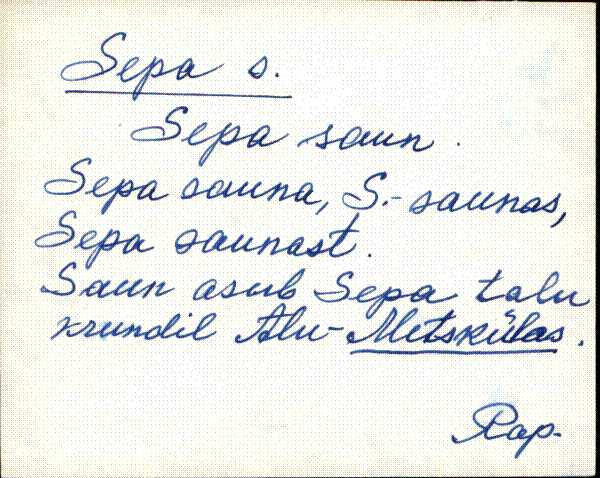 Sepa s.
Sepa saun.
Sepa sauna, S.-saunas,
Sepa saunast.
Saun asub Sepa talu
krundil Alu-Metskülas.
Rap.